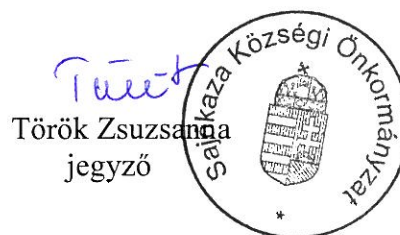 Török Zsuzsanna
jegyző
Sajókaza Községi Önkormányzat